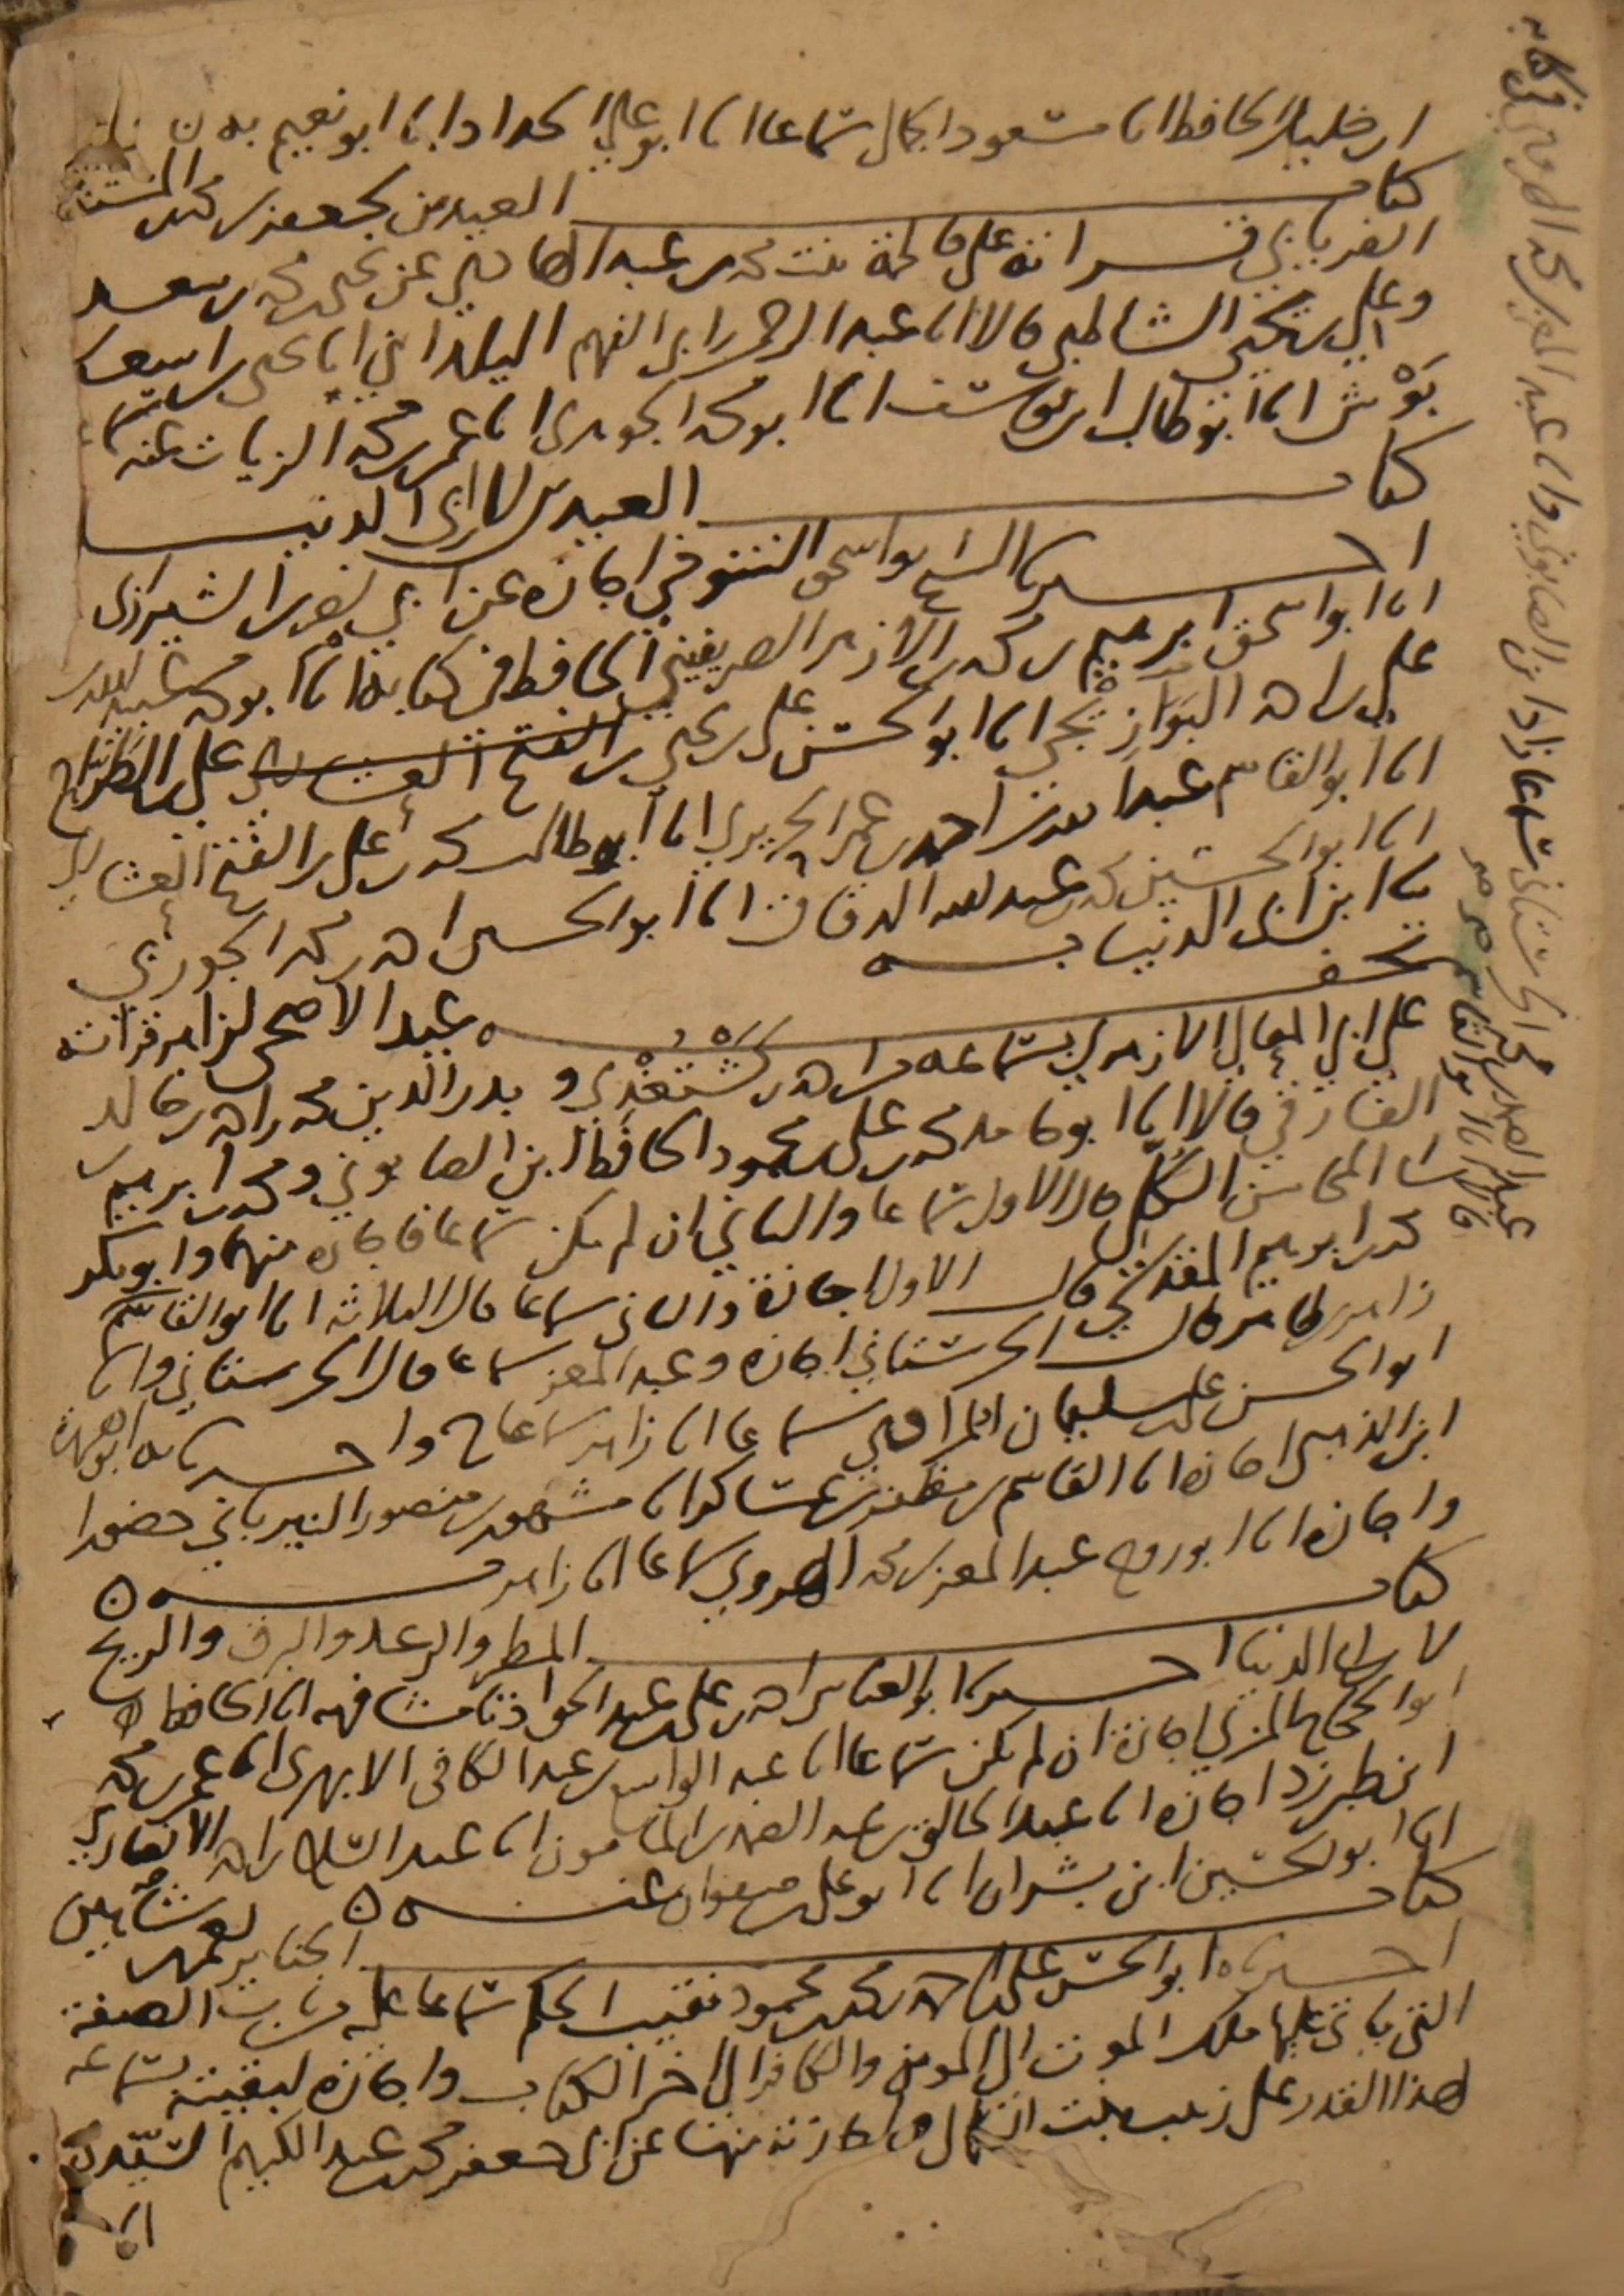 ابن خليل الحافظ انا مسعود الجمال سماعا انا ابو علي الحداد انا ابو نعيم به ن
كتاب العيدين لجعفر بن محمد المستفا
الفريابي قراته على فاطمة بنت محمد بن عبد الهادي عن يحيى بن محمد بن سعد
وعلي بن يحيى الشاطبي قالا انا عبد الرحمن ابن ابي الفهم اليلداني انا يحيى بن اسعد
بوش انا ابو طالب ابن يوسف انا ابو محمد الجوهري انا عمر بن محمد الزيات عنه
كتاب العيدين لابن ابي الدنيا
اخبرنا الشيخ ابو اسحق التنوخي اجازه عن ابي نصر بن الشيرازي
انا ابو اسحق ابرهيم بن محمد بن الازهر الصريفيني الحافظ في كتابه انا ابو محمد عبد الله بن
علي بن احمد البوازيجي انا ابو الحسن علي بن يحيى بن علي بن الطراح
انا ابو القاسم عبد الله بن احمد بن عمر الحريري انا ابو طالب محمد بن علي بن الفتح العشاري
انا ابو الحسين محمد بن عبد الله الدقاق انا ابو الحسن احمد بن محمد الجوزي
نا ابن ابي الدنيا به
تحفه عيد الاضحى لزاهر قراته
على ابي المعالي الازهري بسماعه من احمد بن كشتغدي وبدر الدين محمد بن احمد بن خالد
الفارقي قالا انا ابو حامد محمد بن علي بن محمود الحافظ ابن الصابوني ومحمد بن ابرهيم بن
قال الاول سماعا والثاني ان لم يكن سماعا فاجازه منهما وابو بكر
محمد بن ابرهيم المقدسي قال الاول اجازة والثاني سماعا قال الثلاثه انا ابو القاسم
زاهر بن طاهر قال الحرستاني اجازه وعبد المعز سماعا قال الحرستاني وانا
ابو الحسن علي بن سليمان المرادي سماعا انا زاهر سماعا ح واخبرنا به ابو هريرة
ابن الذهبي اجازه انا القاسم بن مظفر بن عساكر انا مشهور بن منصور النيرباني حضورا
واجازه انا ابو روح عبد المعز بن محمد الهروي سماعا انا زاهر به ن
كتاب المطر والرعد والبرق والريح
لابن ابي الدنيا اخبرنا ابو العباس احمد بن علي بن عبد الحق اذنا مشافهه انا الحافظ
ابو الحجاج المزي اجازة ان لم يكن سماعا انا عبد الواسع بن عبد الكافي الابهري انا عمر بن محمد
ابن طبرزد اجازه انا عبد الخالق بن عبد الصمد بن المامون انا عبد السلام بن احمد الانصاري
انا ابو الحسين ابن بشران انا ابو علي بن صفوان عنه ن
كتاب الجنايز لعمر بن شاهين
اخبرنا ابو الحسن علي بن محمد بن محمود نقيب الحكم سماعا عليه من باب الصفة
التي ياتي عليها ملك الموت الى المومن والكافر الى اخر الكتاب واجازه لبقيته بسماعه
لهذا القدر على زينب بنت الكمال واجازته منها عن ابي جعفر محمد بن عبد الكريم السيدي
انا
عبد الصمد بن محمد الحرستاني سماعا زاد ابن الصابوني وانا عبد المعز بن محمد الهروي في كتابه